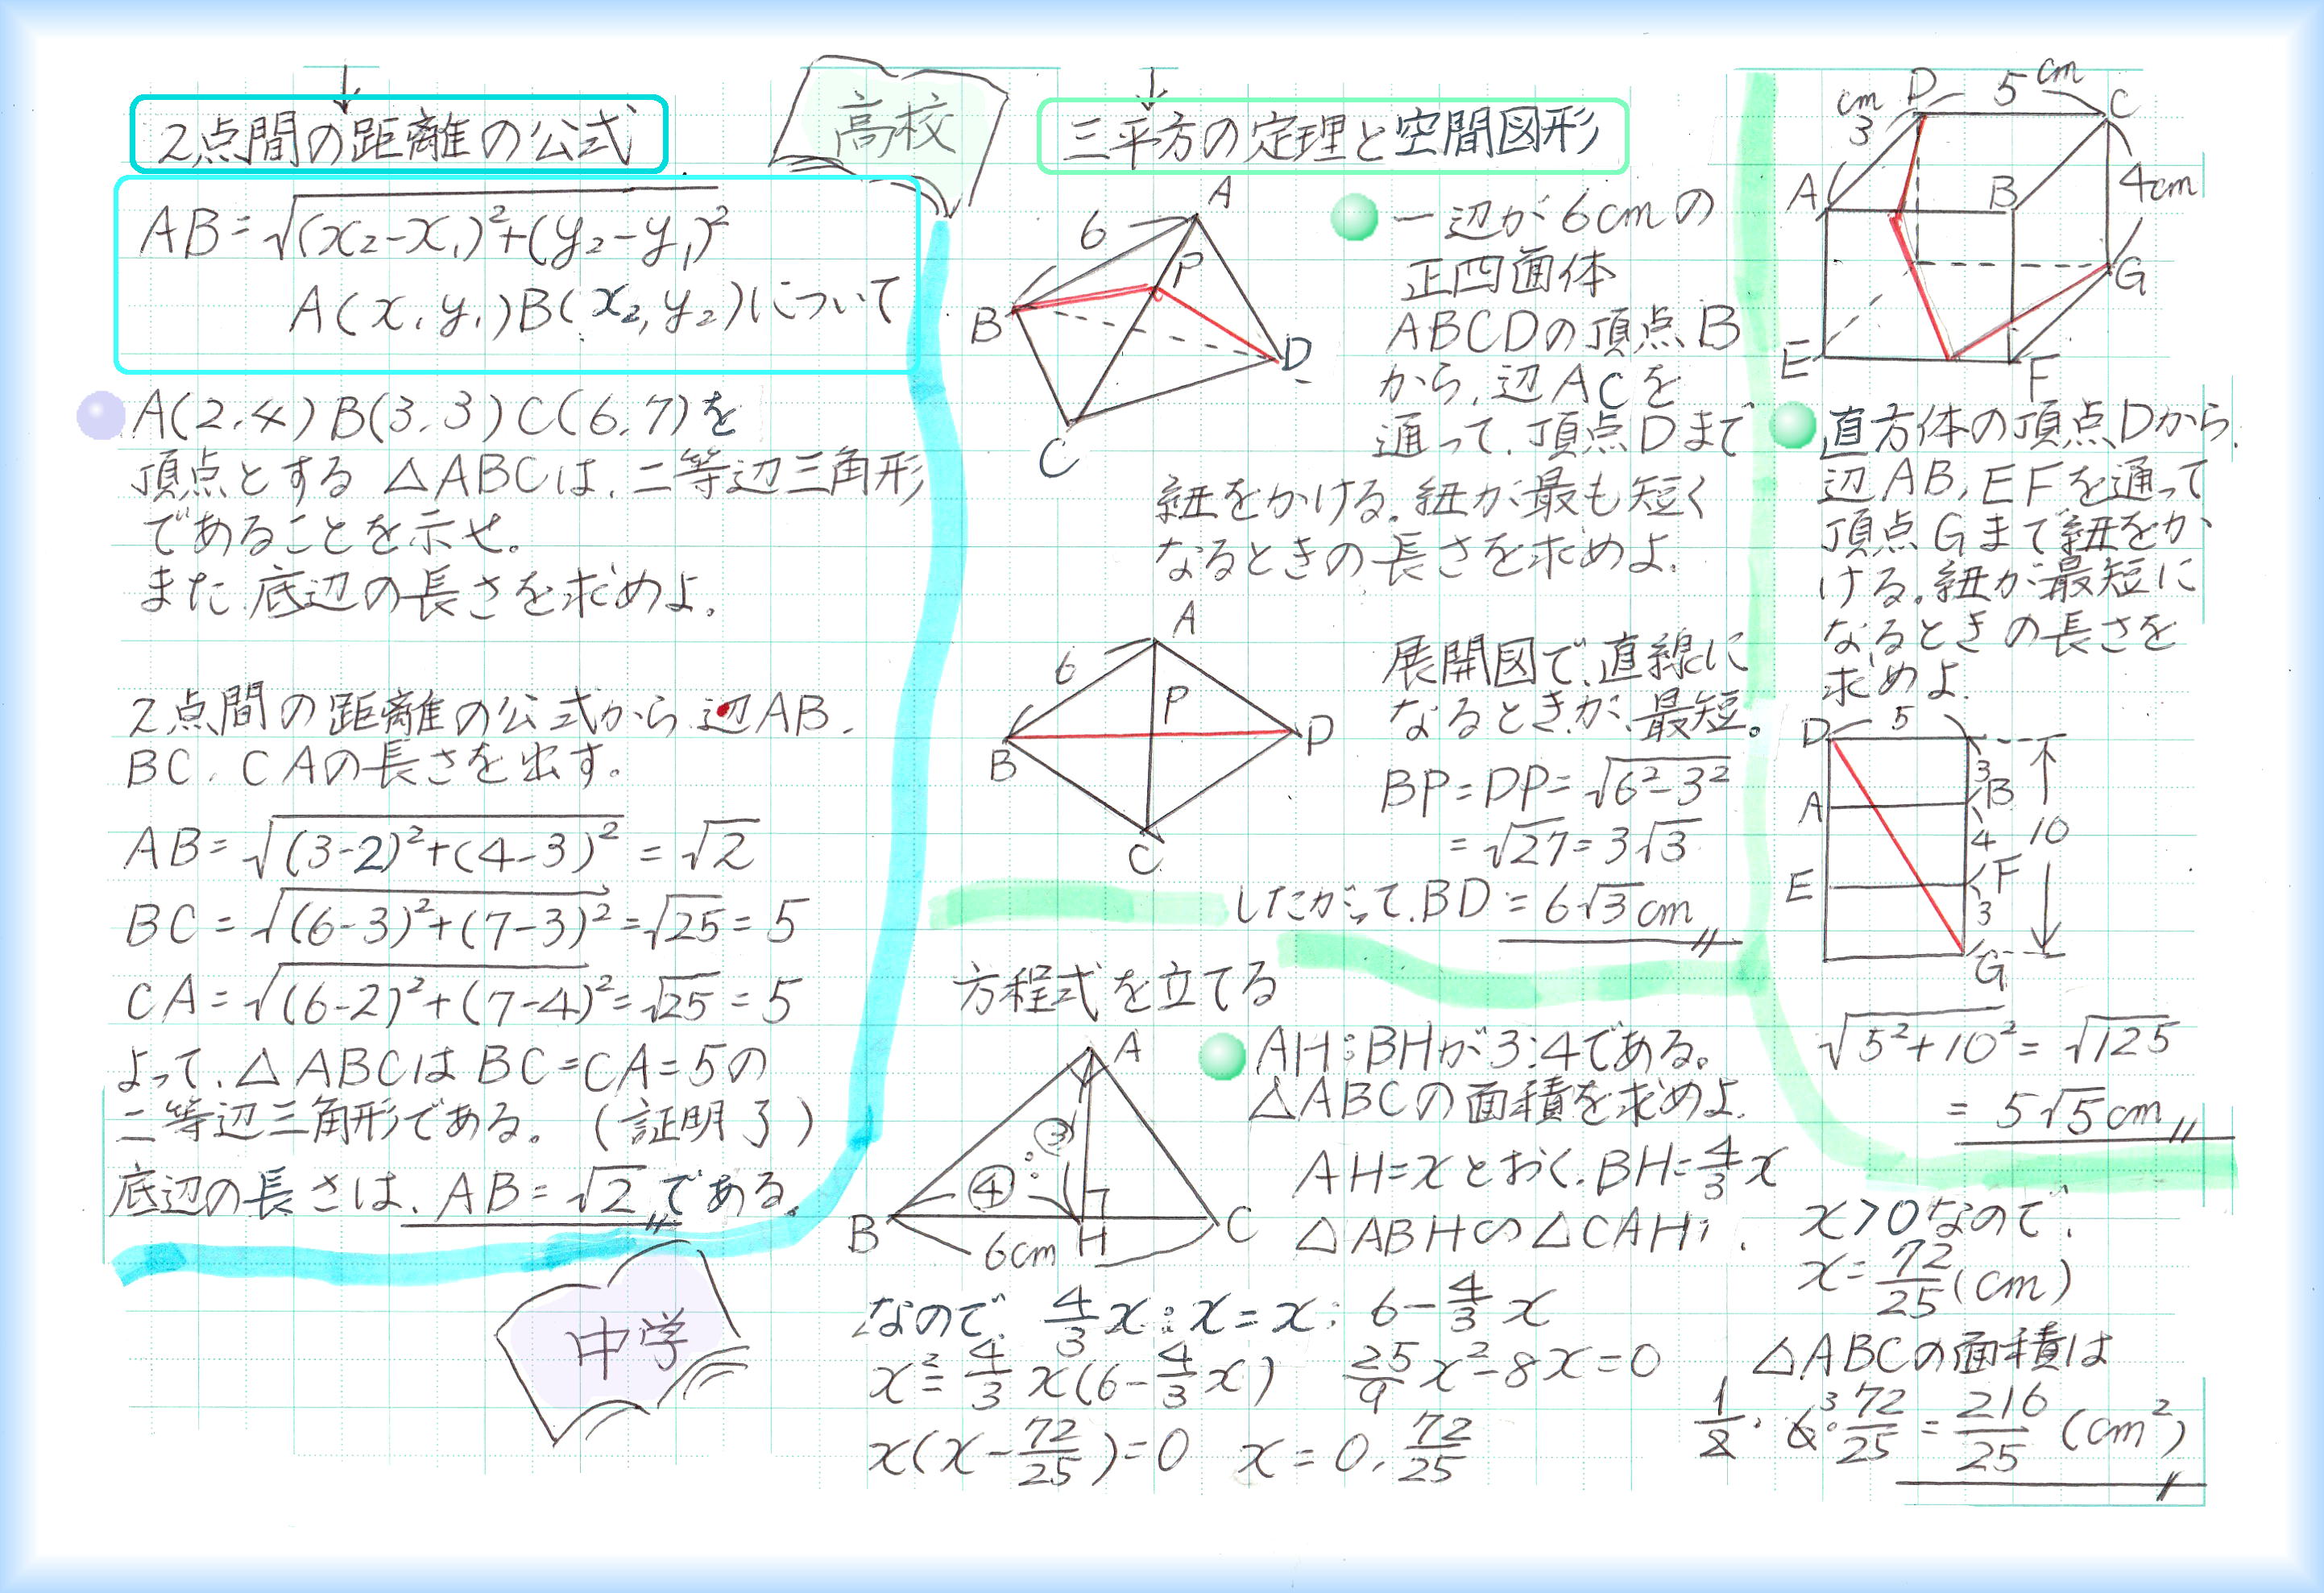 2点間の距離の公式
AB=√(x₂-x₁)²+(y₂-y₁)²
A(x₁y₁)B(x₂,y₂)について
A(2.4)B(3.3)C(6.7)を
頂点とする△ABCは、二等辺三角形
であることを示せ。
また、底辺の長さを求めよ。
2点間の距離の公式から辺AB.
BC.CAの長さを出す。
AB=√(3-2)²+(4-3)²=√2
BC=√(6-3)²+(7-3)²=√25=5
CA=√(6-2)²+(7-4)²=√25=5
よって、△ABCはBC=CA=5の
二等辺三角形である。(証明了)
底辺の長さは、AB=√2である。
高校
中学
三平方の定理と空間図形
A
6
P
B
D
C
一辺が6cmの
正四面体
ABCDの頂点B
から、辺ACを
通って、頂点Dまで
紐をかける。紐が最も短く
なるときの長さを求めよ。
A
6
P
B
D
C
展開図で、直線に
なるときが、最短。
BP=DP=√6²-3²
=√27=3√3
したがって、BD=6√3cm
D
5cm
C
3cm
A
B
4cm
G
E
F
直方体の頂点Dから、
辺AB,EFを通って
頂点Gまで紐をか
ける。紐が最短に
なるときの長さを
求めよ。
D
5
3
A
B
4
10
E
F
3
G
√5²+10²=√125
=5√5cm
方程式を立てる
A
③
:
④
B
H
C
6cm
AH:BHが3:4である。
△ABCの面積を求めよ。
AH=xとおく、BH=4/3x
△ABH∽△CAH
なので、4/3x:x=x:6-4/3x
x²=4/3x(6-4/3x) 25/9x²-8x=0
x(x-72/25)=0 x=0.72/25
x>0なので、
x=72/25(cm)
△ABCの面積は
1/2・6³・72/25=216/25(cm²)